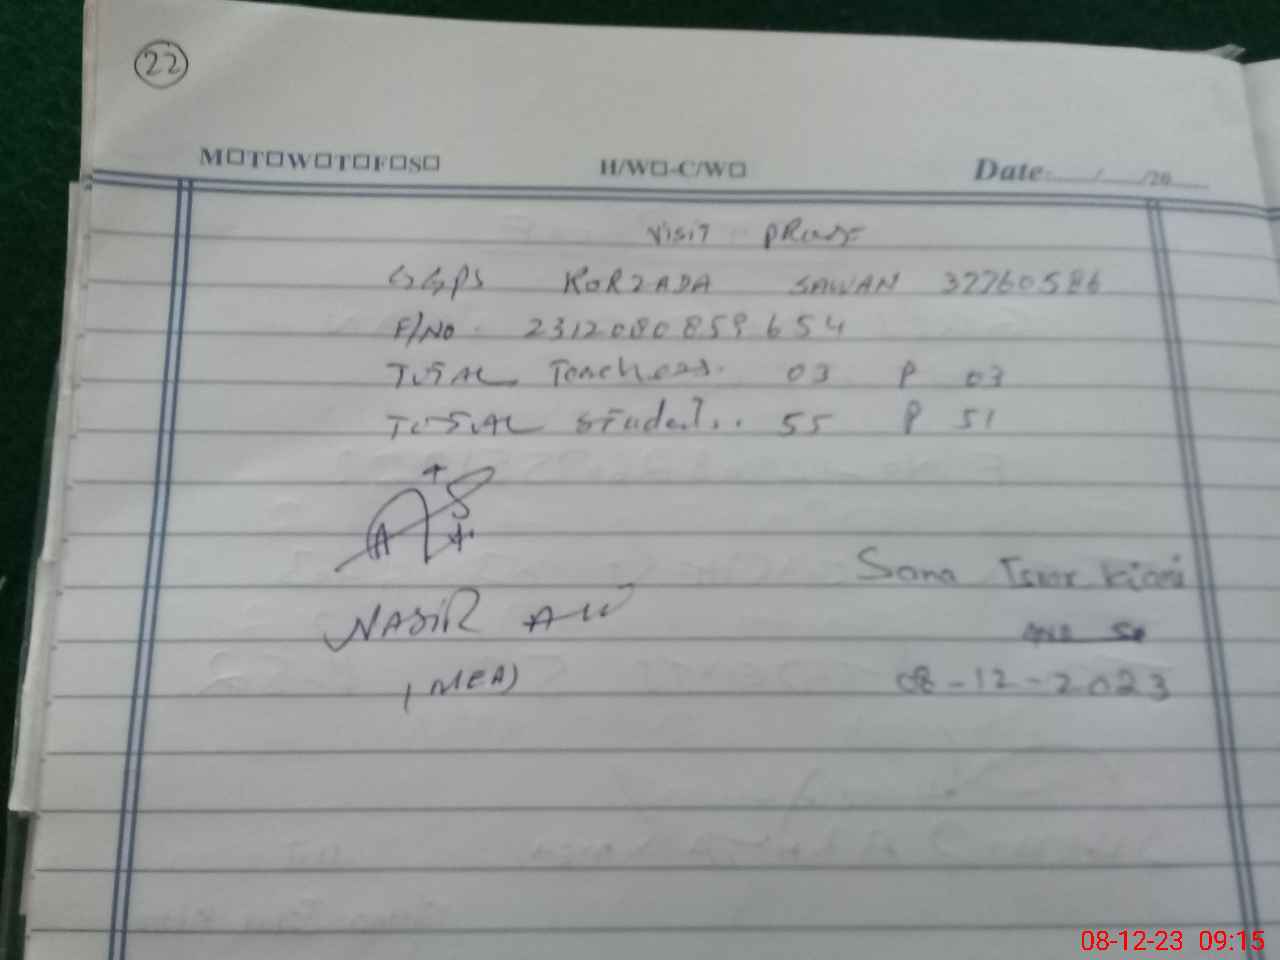 22
M□T□W□T□F□S□ H/W□-C/W□ Date:....../....../20......
Visit
GGPS KORZADA SAWAN 37760586
F/NO. 2312080859654
TOTAL Teachers. 03 P 03
TOTAL Student.. 55 P 51
NASIR Ali
(MEA)
Sana
08-12-2023
08-12-23 09:15